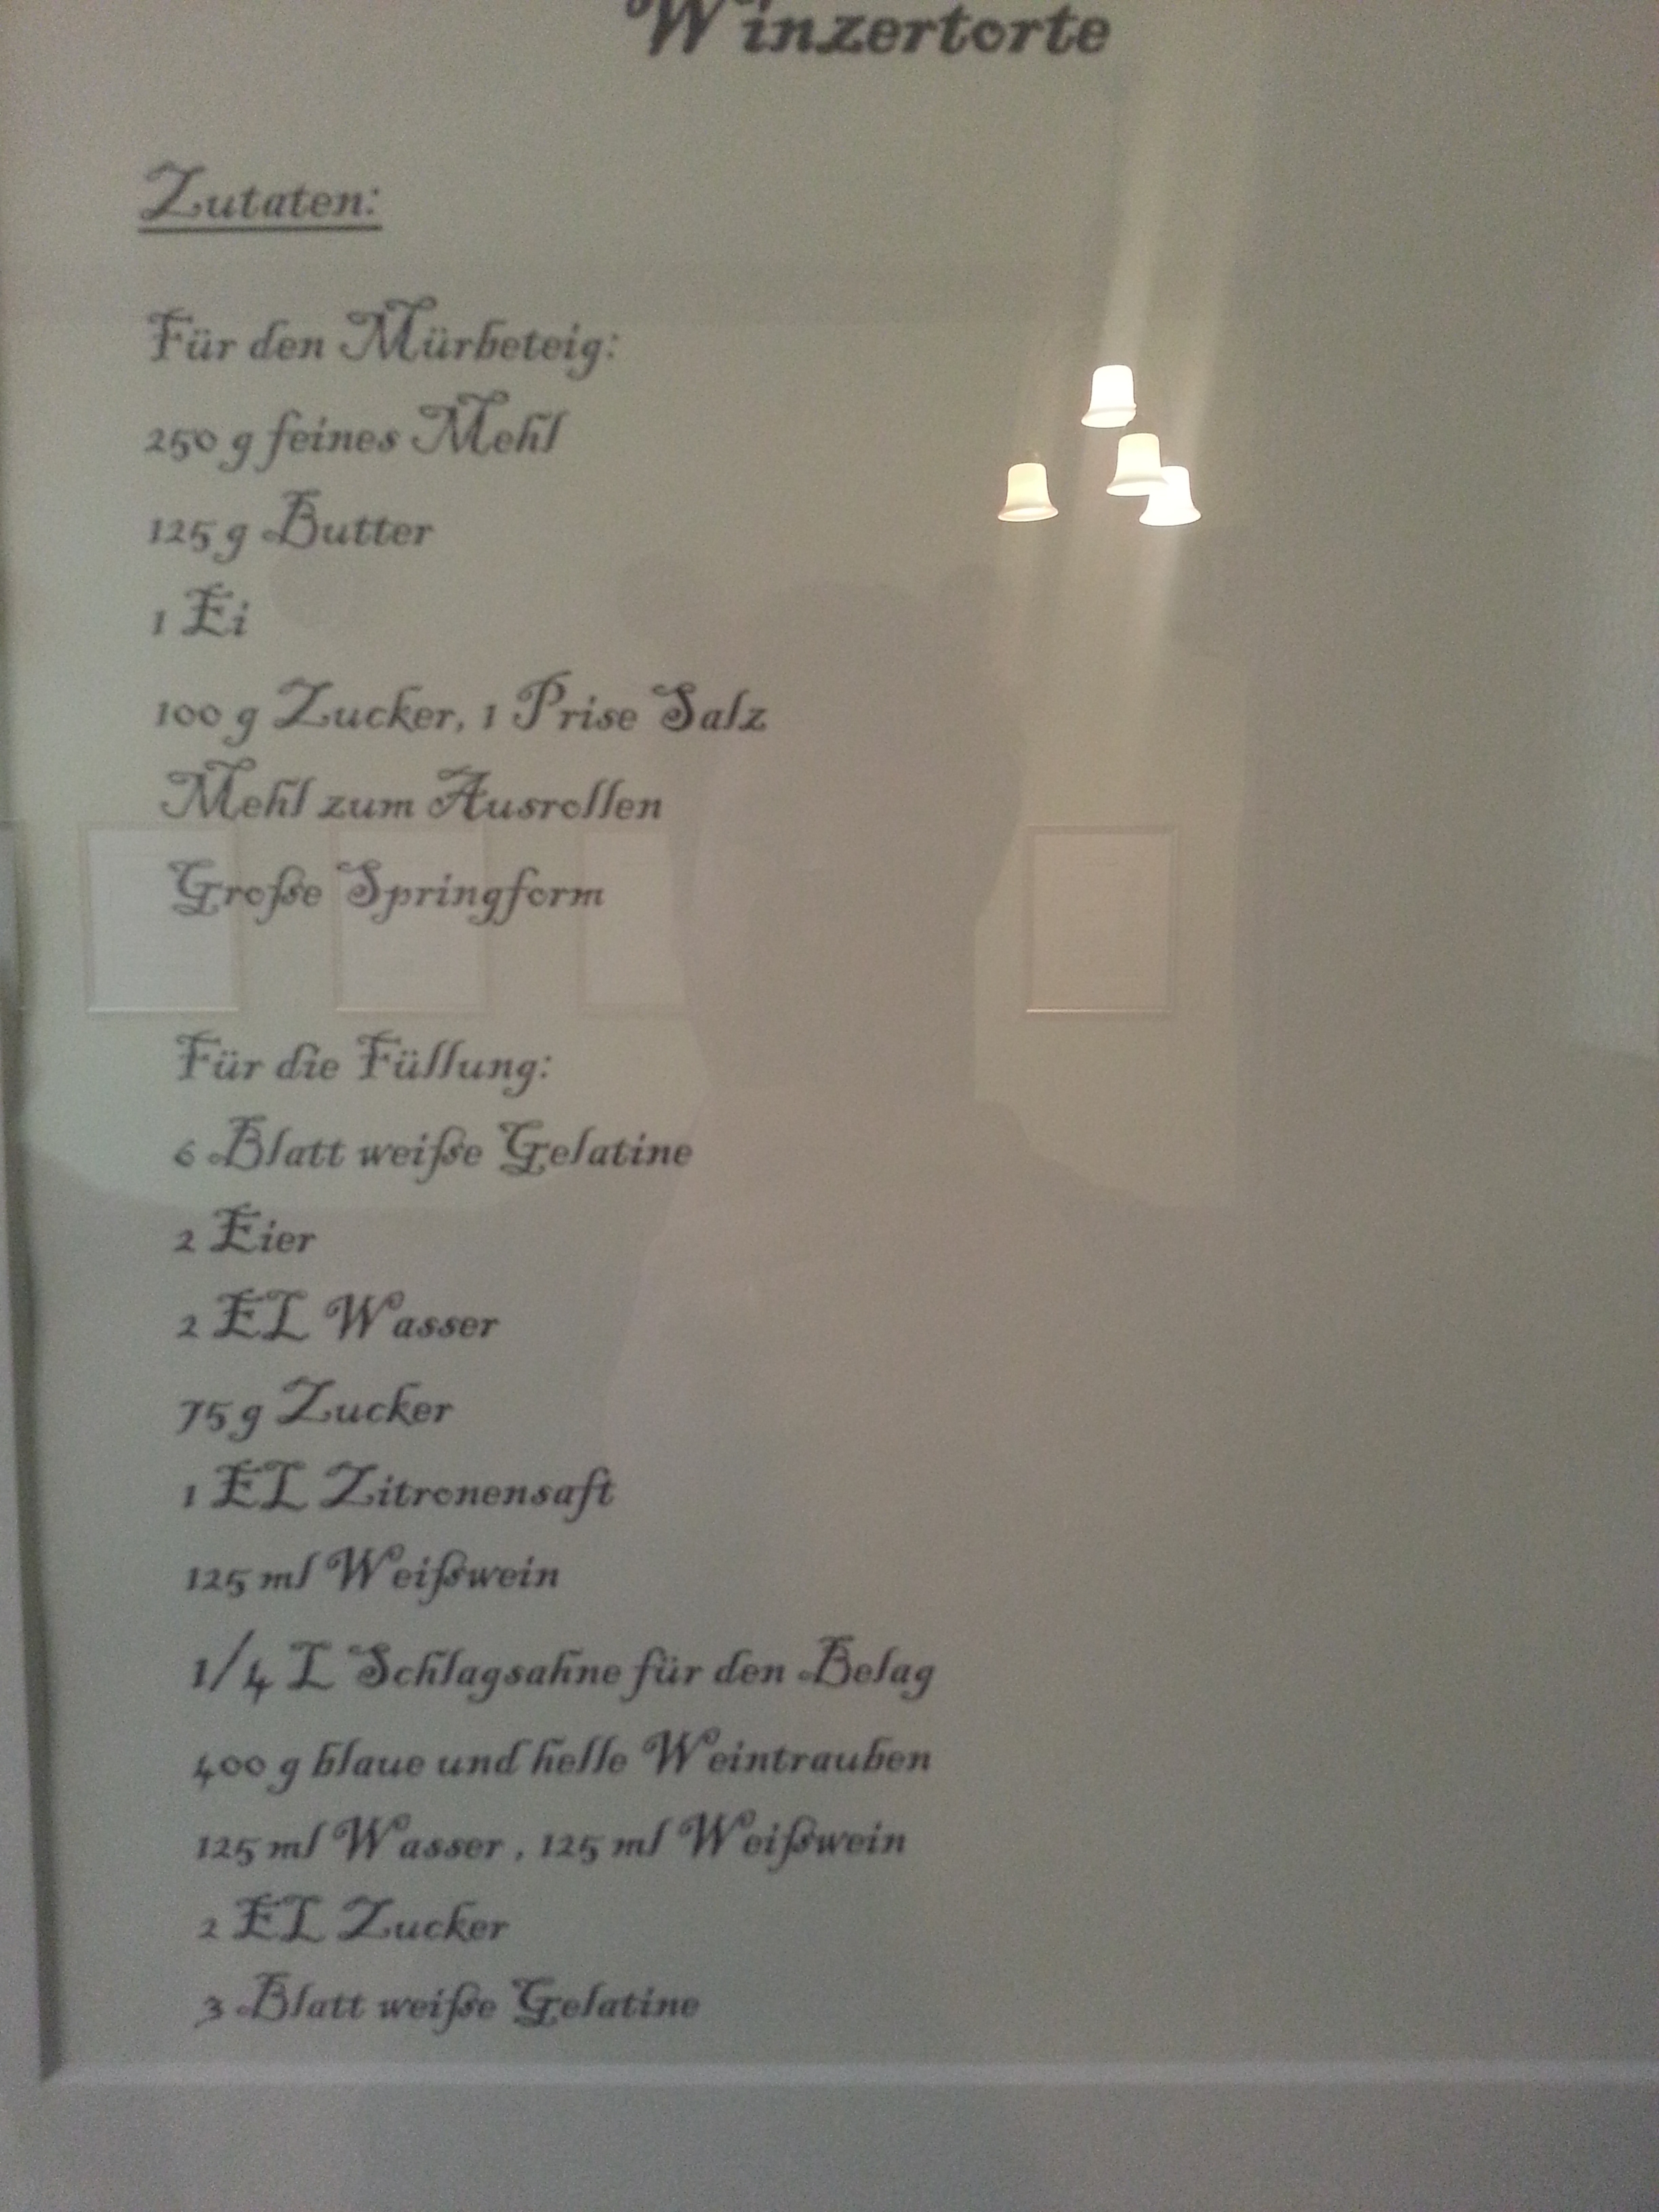 Winzertorte
Zutaten:
Für den Mürbeteig:
250 g feines Mehl
125 g Butter
1 Ei
100 g Zucker, 1 Prise Salz
Mehl zum Ausrollen
Große Springform
Für die Füllung:
6 Blatt weiße Gelatine
2 Eier
2 EL Wasser
75 g Zucker
1 EL Zitronensaft
125 ml Weißwein
1/4 L Schlagsahne für den Belag
400 g blaue und helle Weintrauben
125 ml Wasser , 125 ml Weißwein
2 EL Zucker
3 Blatt weiße Gelatine